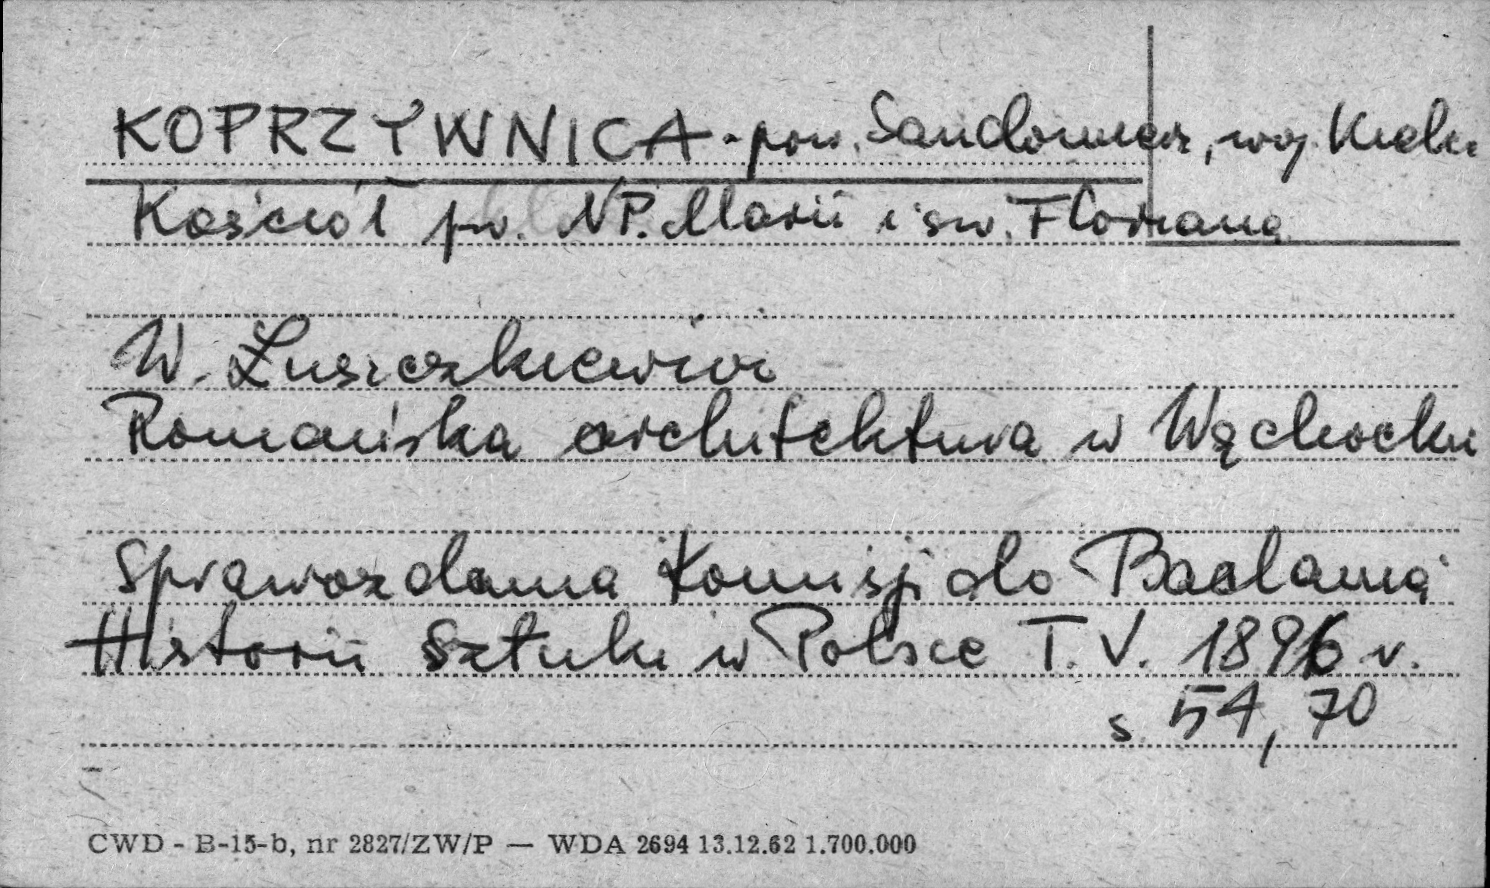 KOPRZYWNICA - pow. Sandomierz, woj. Kielc
Kościół pw. NP. Marii i św. Floriana
W. Łuszczkiewicz
Romańska architektura w Wąchocku
Sprawozdania Komisji do Badania
Historii Sztuki w Polsce T. V. 1896 r.
s. 54, 70
CWD - B-15-b, nr 2827/ZW/P — WDA 2694 13.12.62 1.700.000